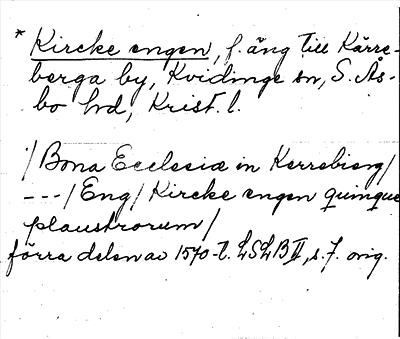 * Kircke engen, f. äng till Kärre-
berga by, Kvidinge sn, S. Ås-
bo hd, Krist. l.
/Bona Ecclesiæ in Kerrebierg/
---/Eng/Kircke engen quinque
plaustrorum/
förra delen av 1570-t. LSLB II, s. 7. orig.